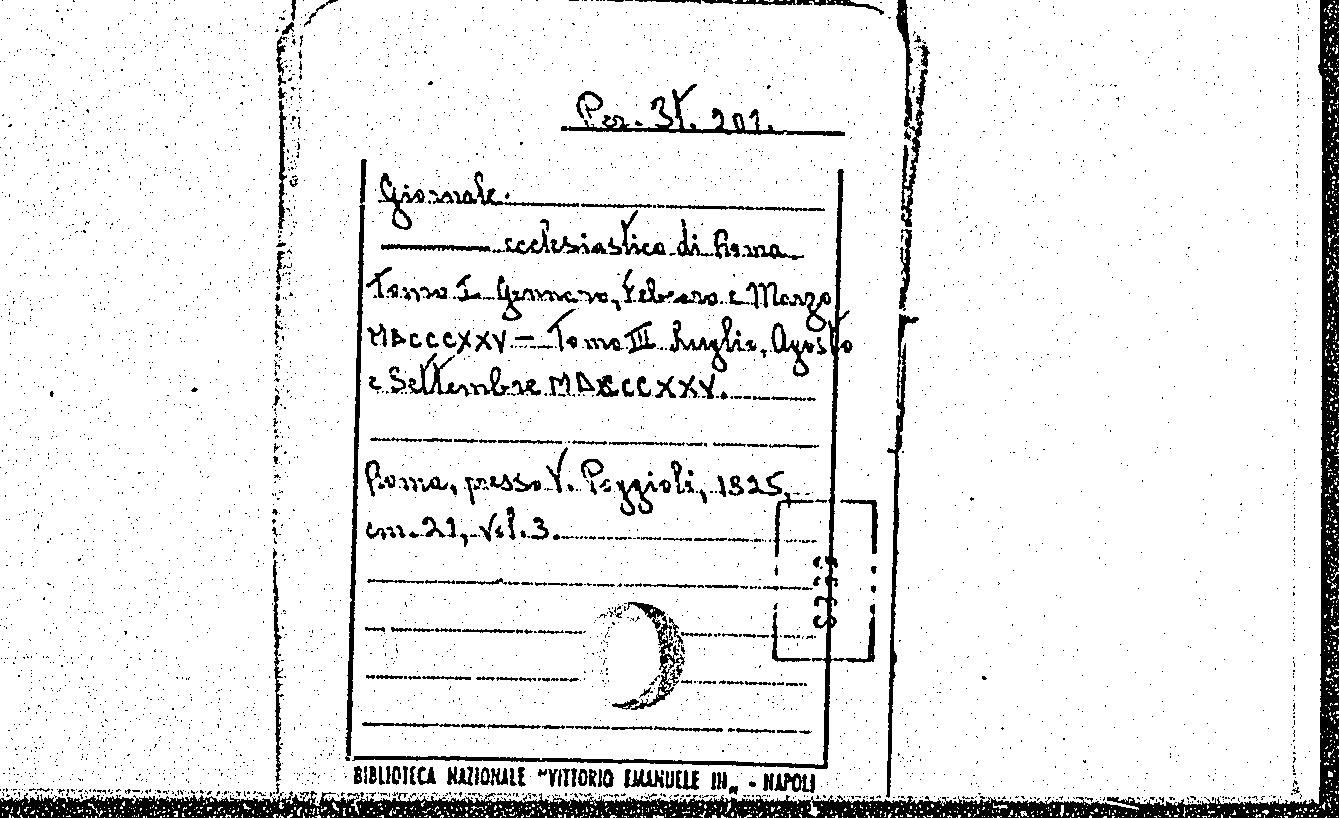 Per. 3V. 201.
Giornale.
ecclesiastico di Roma
Tomo I. Gennaro, Febraro e Marzo
MDCCCXXV – Tomo III Luglio, Agosto
e Settembre MDCCCXXV.
Roma, presso V. Poggioli, 1825,
cm. 21, vol. 3.
BIBLIOTECA NAZIONALE "VITTORIO EMANUELE III„ - NAPOLI